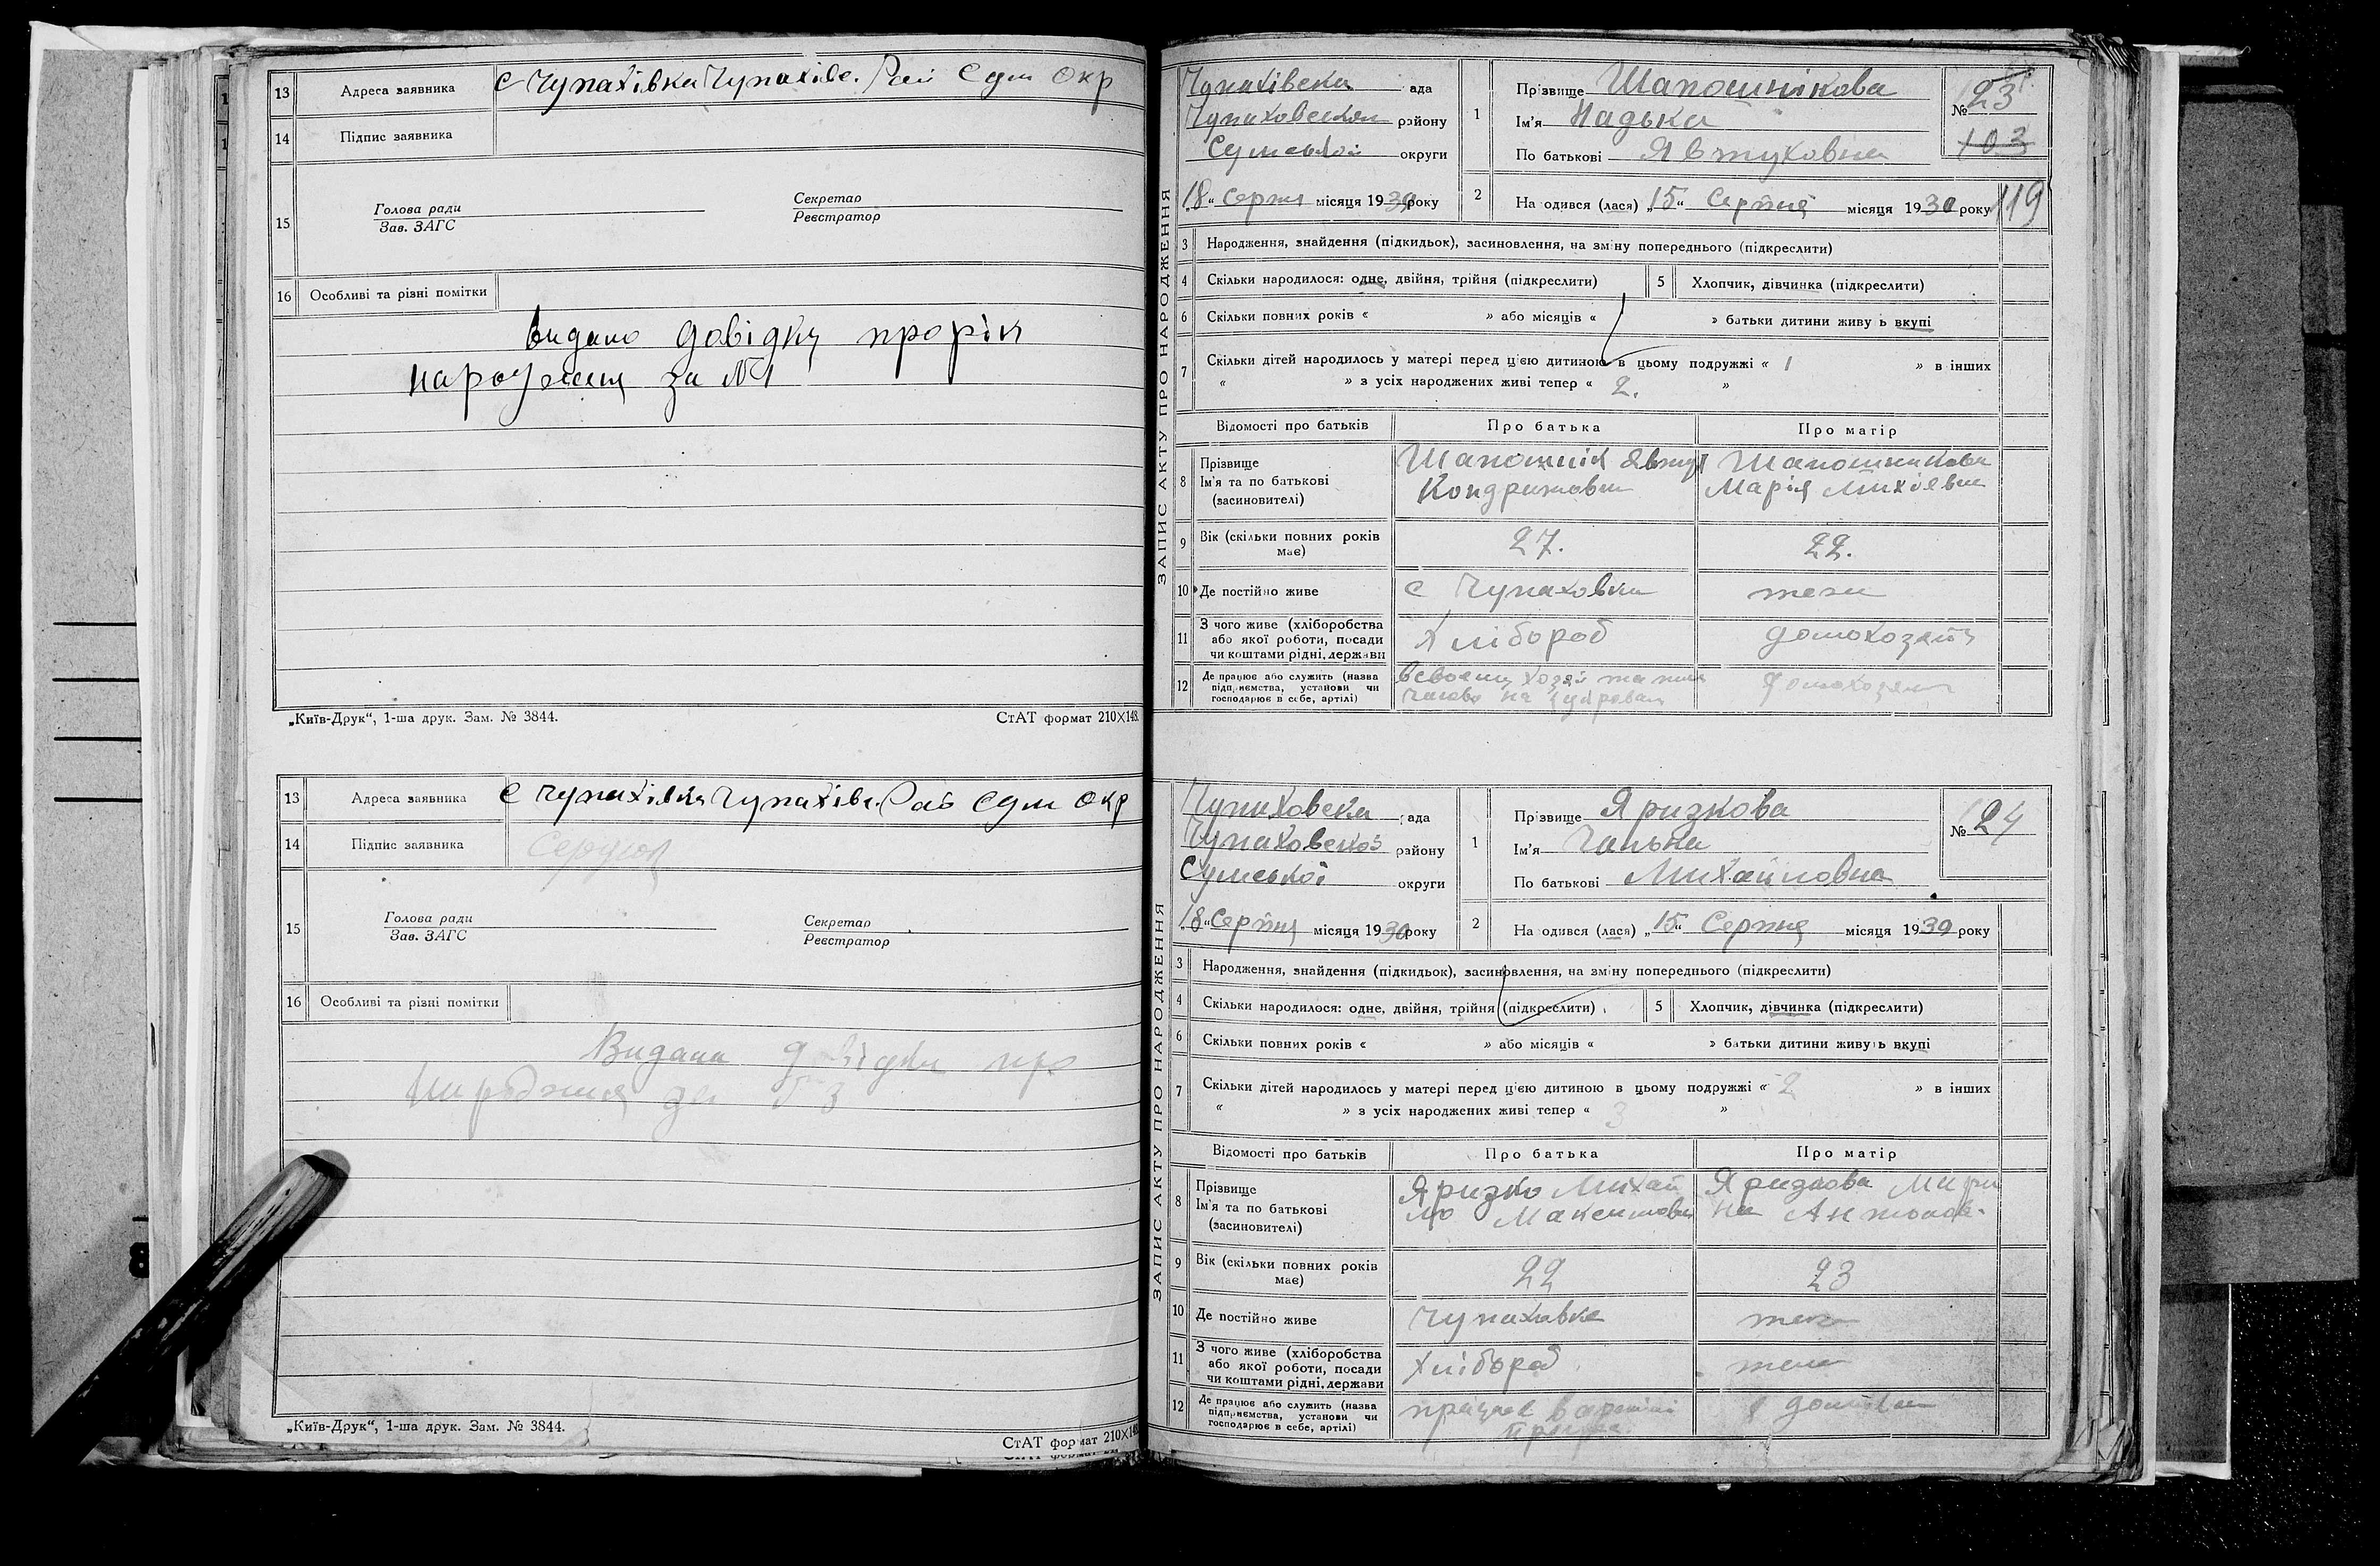 13 Адреса заявника с Чупахівка Чупахівс. Рай Сум Окр
14 Підпис заявника
15 Голова ради
Зав. ЗАГС
Секретар
Реєстратор
16 Особливі та різні помітки
видано довідку про рік
народження за №1
„Київ-Друк“, 1-ша друк. Зам. № 3844. СтАТ формат 210×148.
13 Адреса заявника с Чупахівка Чупахівс. Рай Сум Окр
14 Підпис заявника
15 Голова ради
Зав. ЗАГС
Секретар
Реєстратор
16 Особливі та різні помітки
Видана довідка про
народження за 3
„Київ-Друк“, 1-ша друк. Зам. № 3844. СтАТ формат 210×148
ЗАПИС АКТУ ПРО НАРОДЖЕННЯ
Чупахівська рада
Чупаховської району
Сумської округи
„18“ Серпня місяця 1930 року
1 Прізвище Шапошнікова
Ім'я Надька
По батькові Явтуховна
№ 23
103
2 На одився (лася) „15“ Серпня місяця 1930 року 119
3 Народження, знайдення (підкидьок), засиновлення, на зміну попереднього (підкреслити)
4 Скільки народилося: одне, двійня, трійня (підкреслити) 5 Хлопчик, дівчинка (підкреслити)
6 Скільки повних років « » або місяців « » батьки дитини живуть вкупі
7 Скільки дітей народилось у матері перед цією дитиною в цьому подружжі « 1 » в інших
« » з усіх народжених живі тепер « 2. »
Відомості про батьків Про батька Про матір
8 Прізвище Ім'я та по батькові (засиновителі)
Шапошнік Явтух Шапошникова
Кондратович Марія
9 Вік (скільки повних років має) 27. 22.
10 Де постійно живе с Чупаховка тежи
11 З чого живе (хліборобства
або якої роботи, посади
чи коштами рідні, держави
Хлібороб
12 Де працює або служить (назва
підприємства, установи чи
господарює в себе, артілі)
ЗАПИС АКТУ ПРО НАРОДЖЕННЯ
Чупаховська рада
Чупаховської району
Сумської округи
„18“ Серпня місяця 1930 року
1 Прізвище Яризкова
Ім'я Галька
По батькові Михайловна
№ 24
2 На одився (лася) „15“ Серпня місяця 1930 року
3 Народження, знайдення (підкидьок), засиновлення, на зміну попереднього (підкреслити)
4 Скільки народилося: одне, двійня, трійня (підкреслити) 5 Хлопчик, дівчинка (підкреслити)
6 Скільки повних років « » або місяців « » батьки дитини живуть вкупі
7 Скільки дітей народилось у матері перед цією дитиною в цьому подружжі « 2 » в інших
« » з усіх народжених живі тепер « 3 »
Відомості про батьків Про батька Про матір
8 Прізвище Ім'я та по батькові (засиновителі)
Яризко Михай Яризкова Мари
ло Максимович на Антонов.
9 Вік (скільки повних років має) 22 23
10 Де постійно живе Чупаховке теж
11 З чого живе (хліборобства
або якої роботи, посади
чи коштами рідні, держави
Хлібороб
12 Де працює або служить (назва
підприємства, установи чи
господарює в себе, артілі)